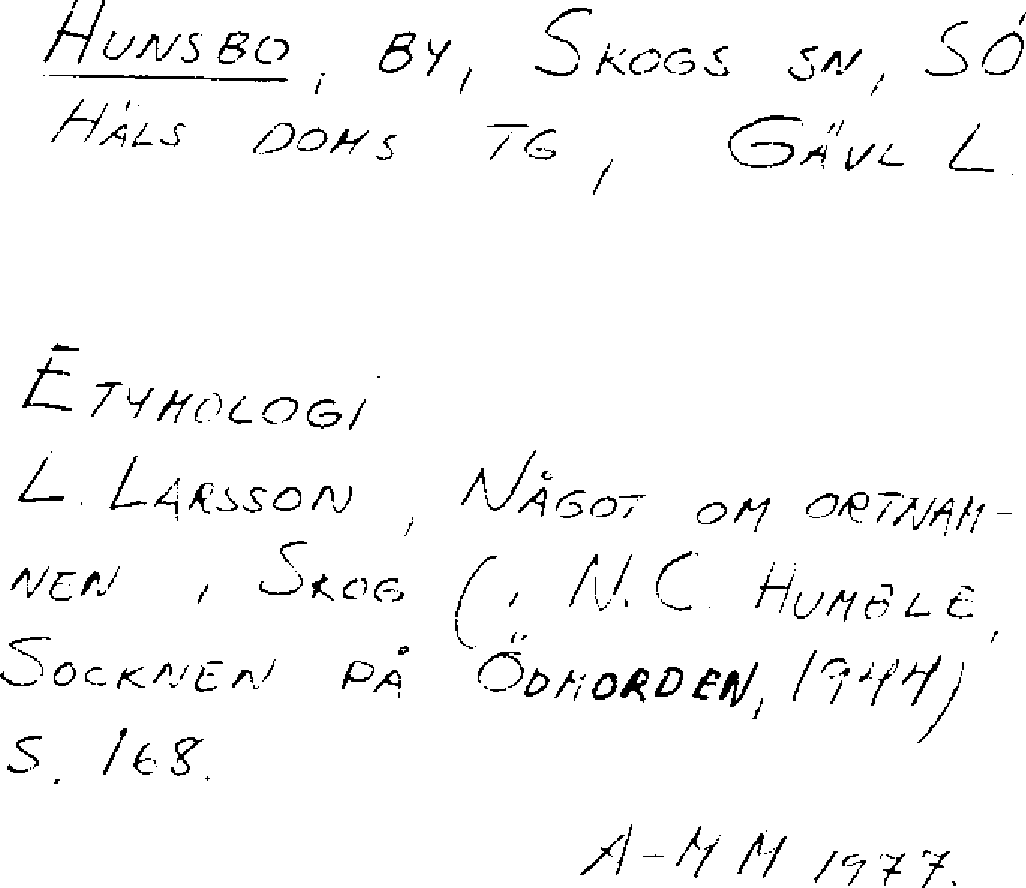 HUNSBO, BY, SKOGS SN, SÖ
HÄLS DOMS TG, GÄVL L.
ETYMOLOGI
L. LARSSON, NÅGOT OM ORTNAM-
NEN I SKOG (I N.C. HUMBLE,
SOCKNEN PÅ ÖDMORDEN, 1944)
S. 168.
A-MM 1977.